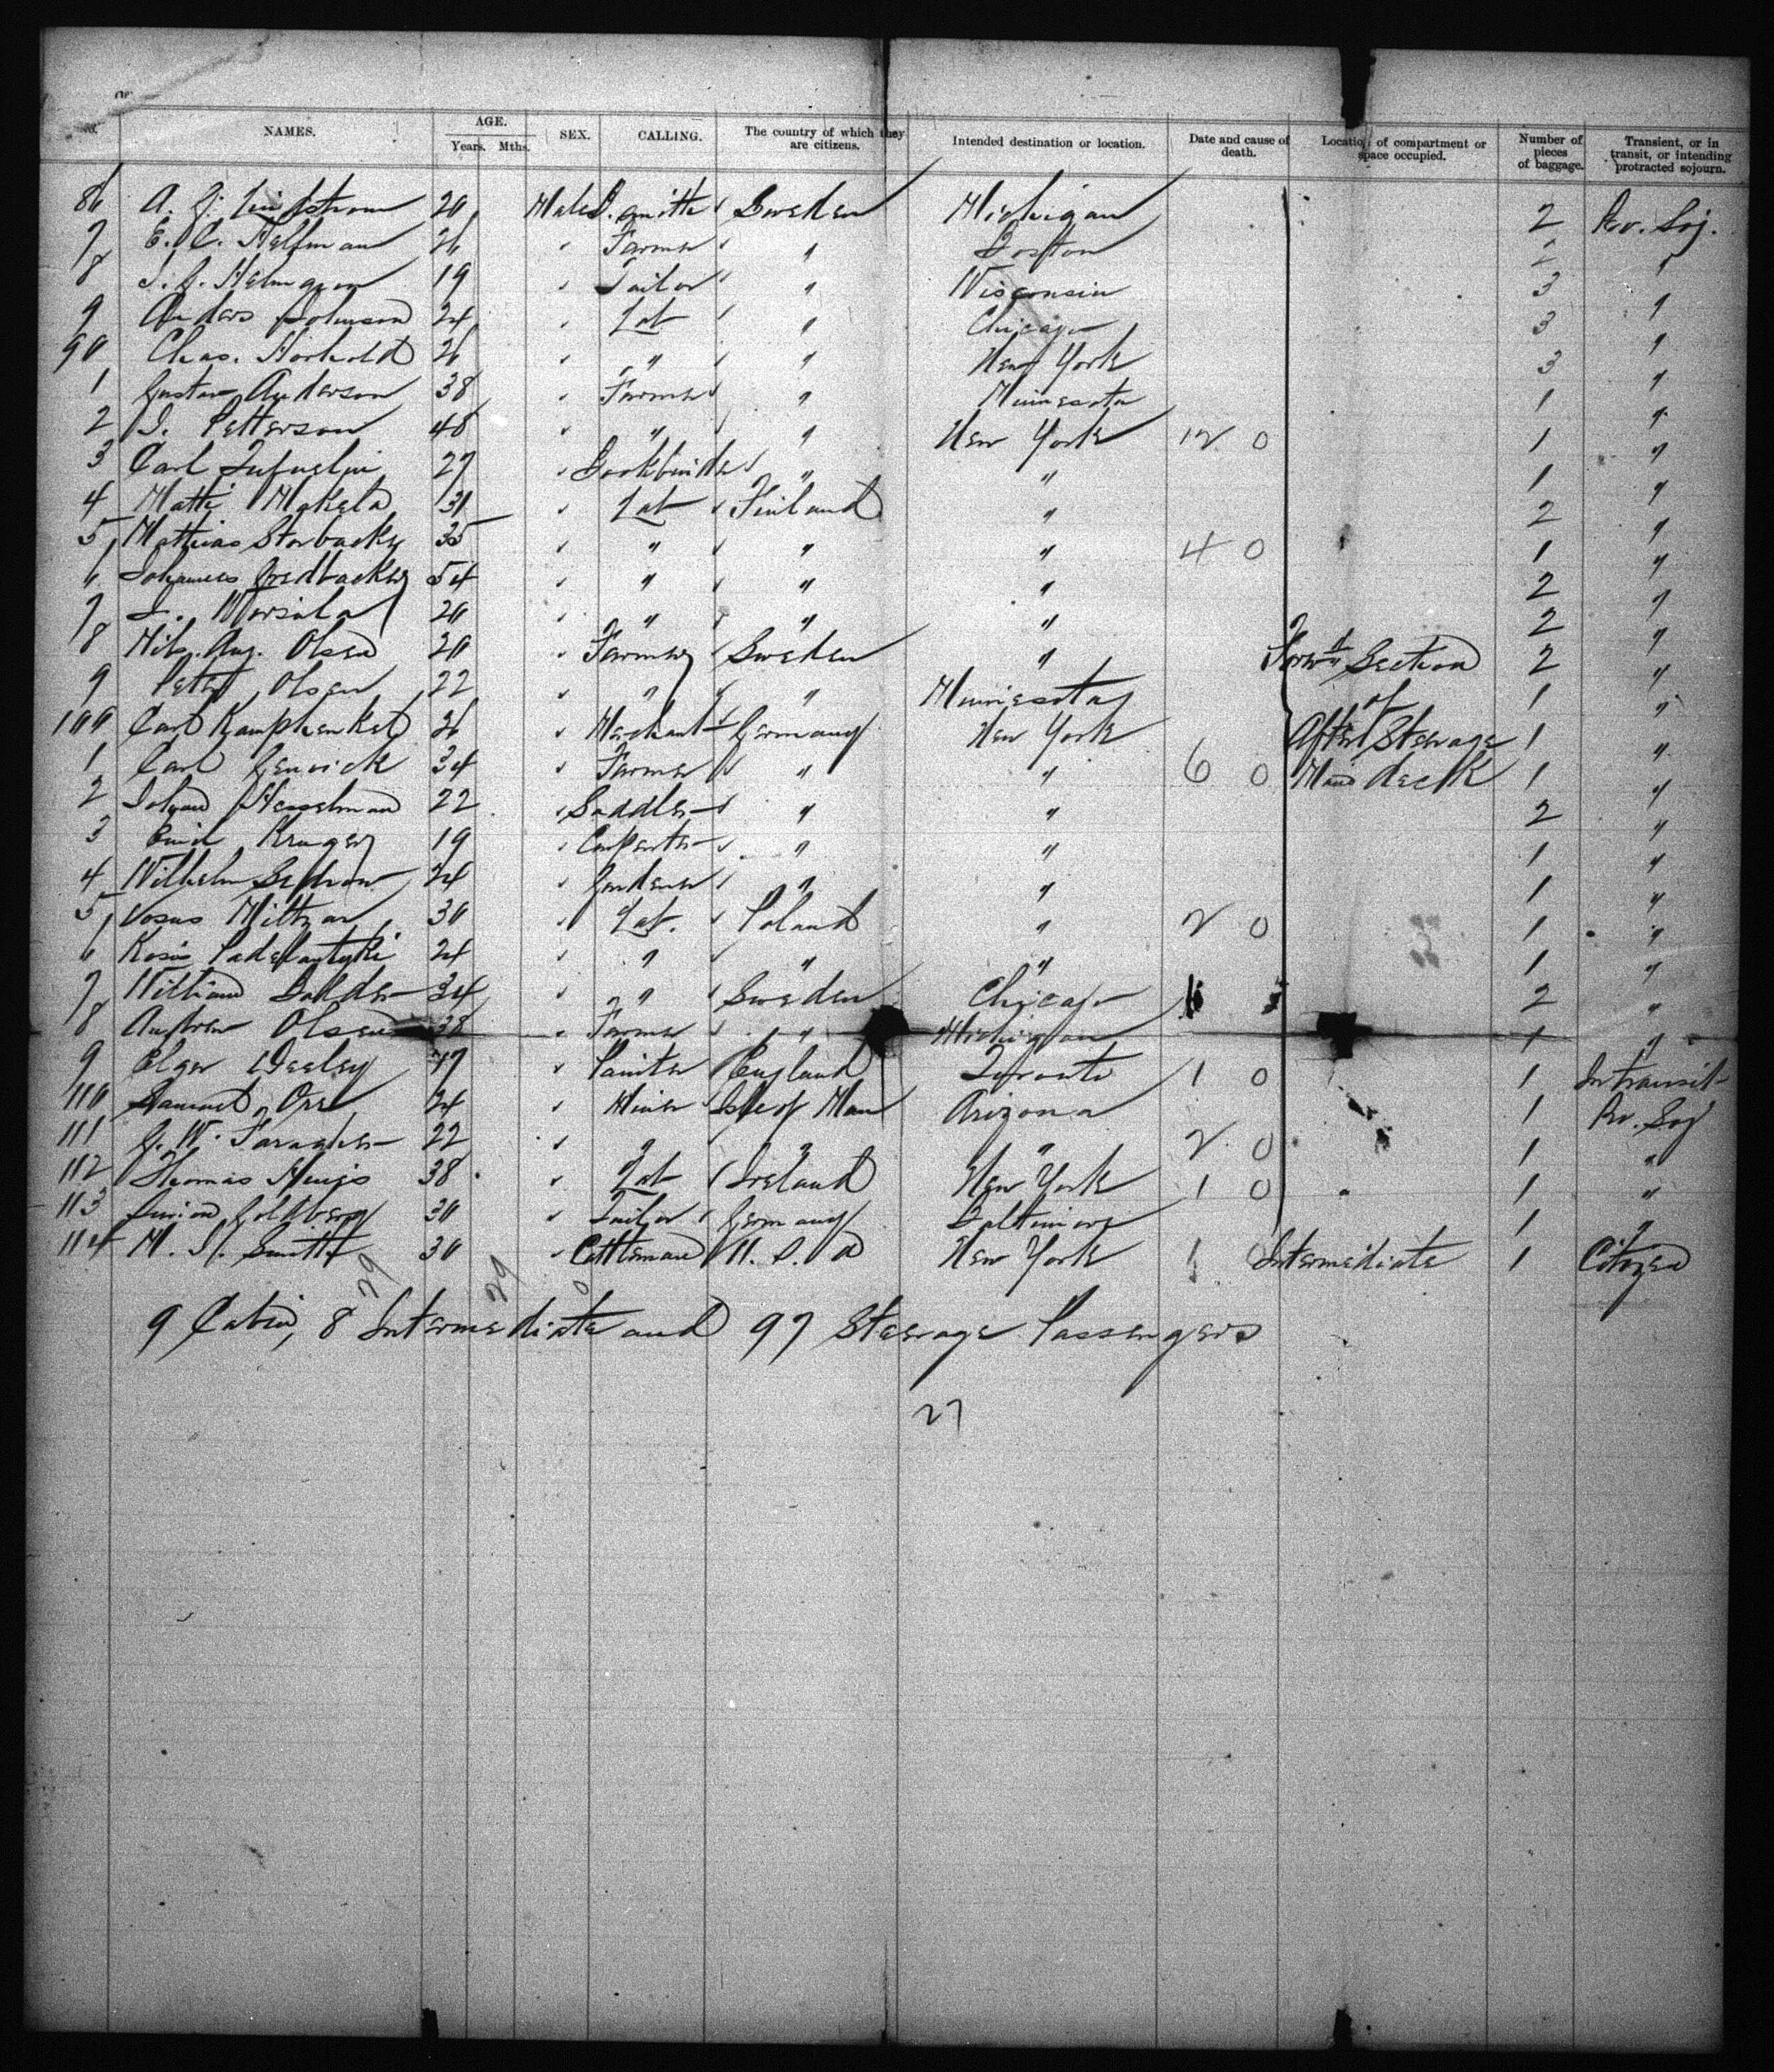 No. NAMES. AGE. Years. Mths. SEX. CALLING. The country of which they are citizens. Intended destination or location. Date and cause of death. Location of compartment or space occupied. Number of pieces of baggage. Transient, or in transit, or intending protracted sojourn.
86 A. J. Lindstrom 20 Male Smith Sweden Michigan 2 Pro. Soj.
7 E. C. Hellman 26 " Farmer " " Boston 2 "
8 19 " Tailor " " Wisconsin 3 "
9 Anders Johnson 24 " Lab " " Chicago 3 "
90 Chas. 26 " " " " New York 3 "
1 Gustav Anderson 38 " Farmer " " Minnesota 1 "
2 Petterson 48 " " " " New York 12 0 1 "
3 Carl 27 " Bookbinder " " " 1 "
4 Matti Makela 31 " Lab " Finland " 2 "
5 Mattias Storbacka 35 " " " " " 4 0 1 "
6 Johannes 54 " " " " " 2 "
7 20 " " " " " 2 "
8 Nils Aug. Olsen 20 " Farmer Sweden " Forwd Section 2 "
9 Peter Olsen 22 " " " " Minnesota of 1 "
100 Carl 26 " Merchant Germany New York After Steerage 1 "
1 Carl 34 " Farmer " " " 6 0 Main deck 1 "
2 Johann Hesselman 22 " Saddler " " " 2 "
3 Emil Kruger 19 " Carpenter " " " 1 "
4 Wilhelm 24 " Gardener " " " 1 "
5 30 " Lab. " Poland " 2 0 1 "
6 24 " " " " " 1 "
7 William 34 " " " Sweden Chicago 2 "
8 Andrew Olsen 38 " Farmer " " Michigan 1 "
9 Elger Deeley 47 " Painter England Toronto 1 0 1 In transit
110 Samuel Orr 24 " Miner Isle of Man Arizona 1 Pro. Soj
111 J. W. Faragher 22 " " " " 2 0 1 "
112 Thomas 38 " Lab Ireland New York 1 0 1 "
113 Goldberg 30 " Tailor " Germany Baltimore 1 "
114 M. H. Smith 30 " Cattleman U. S. A New York 1 0 Intermediate 1 Citizen
29 29 0
9 Cabin, 8 Intermediate and 97 Steerage Passengers
27